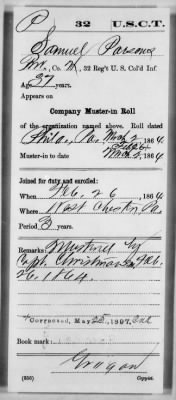 P 32 U.S.C.T.
Samuel Parsons
Pvt., Co. H, 32 Reg't U. S. Col'd Inf.
Age 37 years.
Appears on
Company Muster-in Roll
of the organization named above. Roll dated
Phila, Pa. March 2, 1864
Feb 26
Muster-in to date March 2, 1864
Joined for duty and enrolled:
When Feb. 26, 1864
Where West Chester Pa.
Period 3 years.
Remarks: Mustered by
Capt. Christman Feb.
26, 1864.
Corrected, May 25, 1897.
Book mark:
Grogan
(356) Copyist.